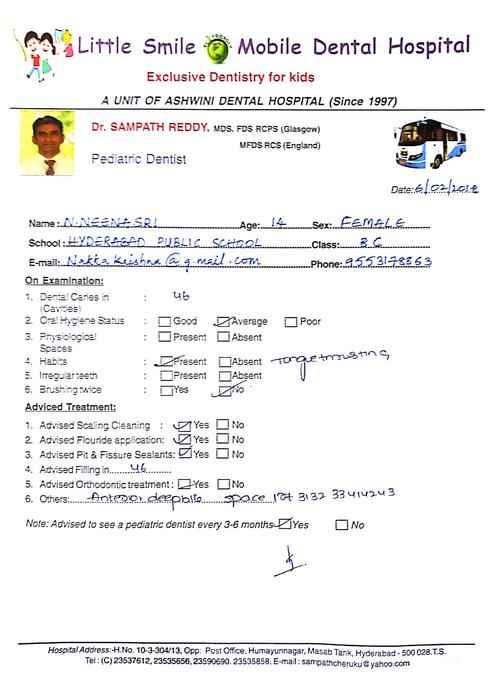 Little Smile Mobile Dental Hospital
Exclusive Dentistry for kids
A UNIT OF ASHWINI DENTAL HOSPITAL (Since 1997)
Dr. SAMPATH REDDY, MDS. FDS RCPS (Glasgow)
MFDS RCS (England)
Pediatric Dentist
Date: 6/02/2018
Name: N.NEENASRI Age: 14 Sex: FEMALE
School: HYDERABAD PUBLIC SCHOOL Class: 8 C
E-mail: Nakka Krishna @ g.mail.com Phone: 9553178363
On Examination:
1. Dental Caries in : 46
(Cavities)
2. Oral Hygiene Status : Good Average Poor
3. Physiological : Present Absent
Spaces
4. Habits : Present Absent
5. Irregular teeth : Present Absent
6. Brushing twice : Yes No
Adviced Treatment:
1. Advised Scaling Cleaning : Yes No
2. Advised Flouride application: Yes No
3. Pit & Fissure Sealants: Yes No
4. Advised Filling in 46
5. Advised Orthodontic treatment : Yes No
6. Others: Anterior deepbite space 31 32 33 41 42 43
Note: Advised to see a pediatric dentist every 3-6 months Yes No
Hospital Address:-H.No. 10-3-304/13, Opp: Post Office, Humayunnagar, Masab Tank, Hyderabad - 500 028.T.S.
Tel : (C) 23537612, 23535656, 23590690. 23535858. E-mail : sampathcheruku@yahoo.com